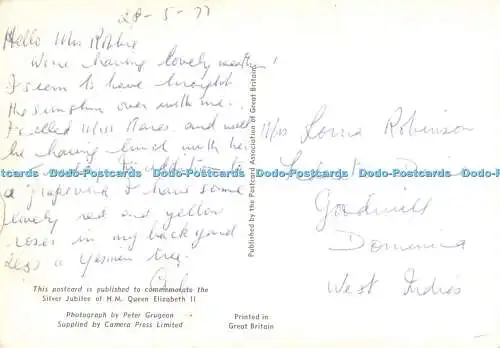 28-5-77
Hello Mrs Robbie
We're having lovely weather!
I seem to have brought
the sunshine over with me..
I called Miss and will
be having lunch with her
to addition to
a grapevine I have some
lovely red and yellow
roses in my backyard
also a tree.
This postcard is published to commemorate the
Silver Jubilee of H.M. Queen Elizabeth II
Photograph by Peter Grugeon
Supplied by Camera Press Limited
Published by the Postcard Association of Great Britain
Printed in
Great Britain
Miss Lorna Robinson
Goodwill
Dominica
West Indies
Dodo-Postcards Dodo-Postcards Dodo-Postcards Dodo-Postcards